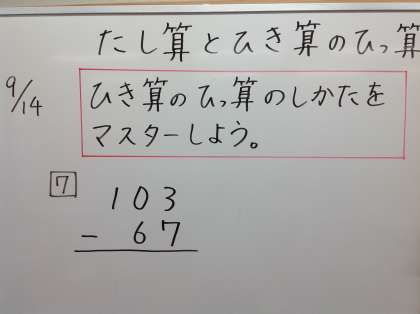 たし算とひき算のひっ算
9/14
ひき算のひっ算のしかたを
マスターしよう。
7
103
- 67